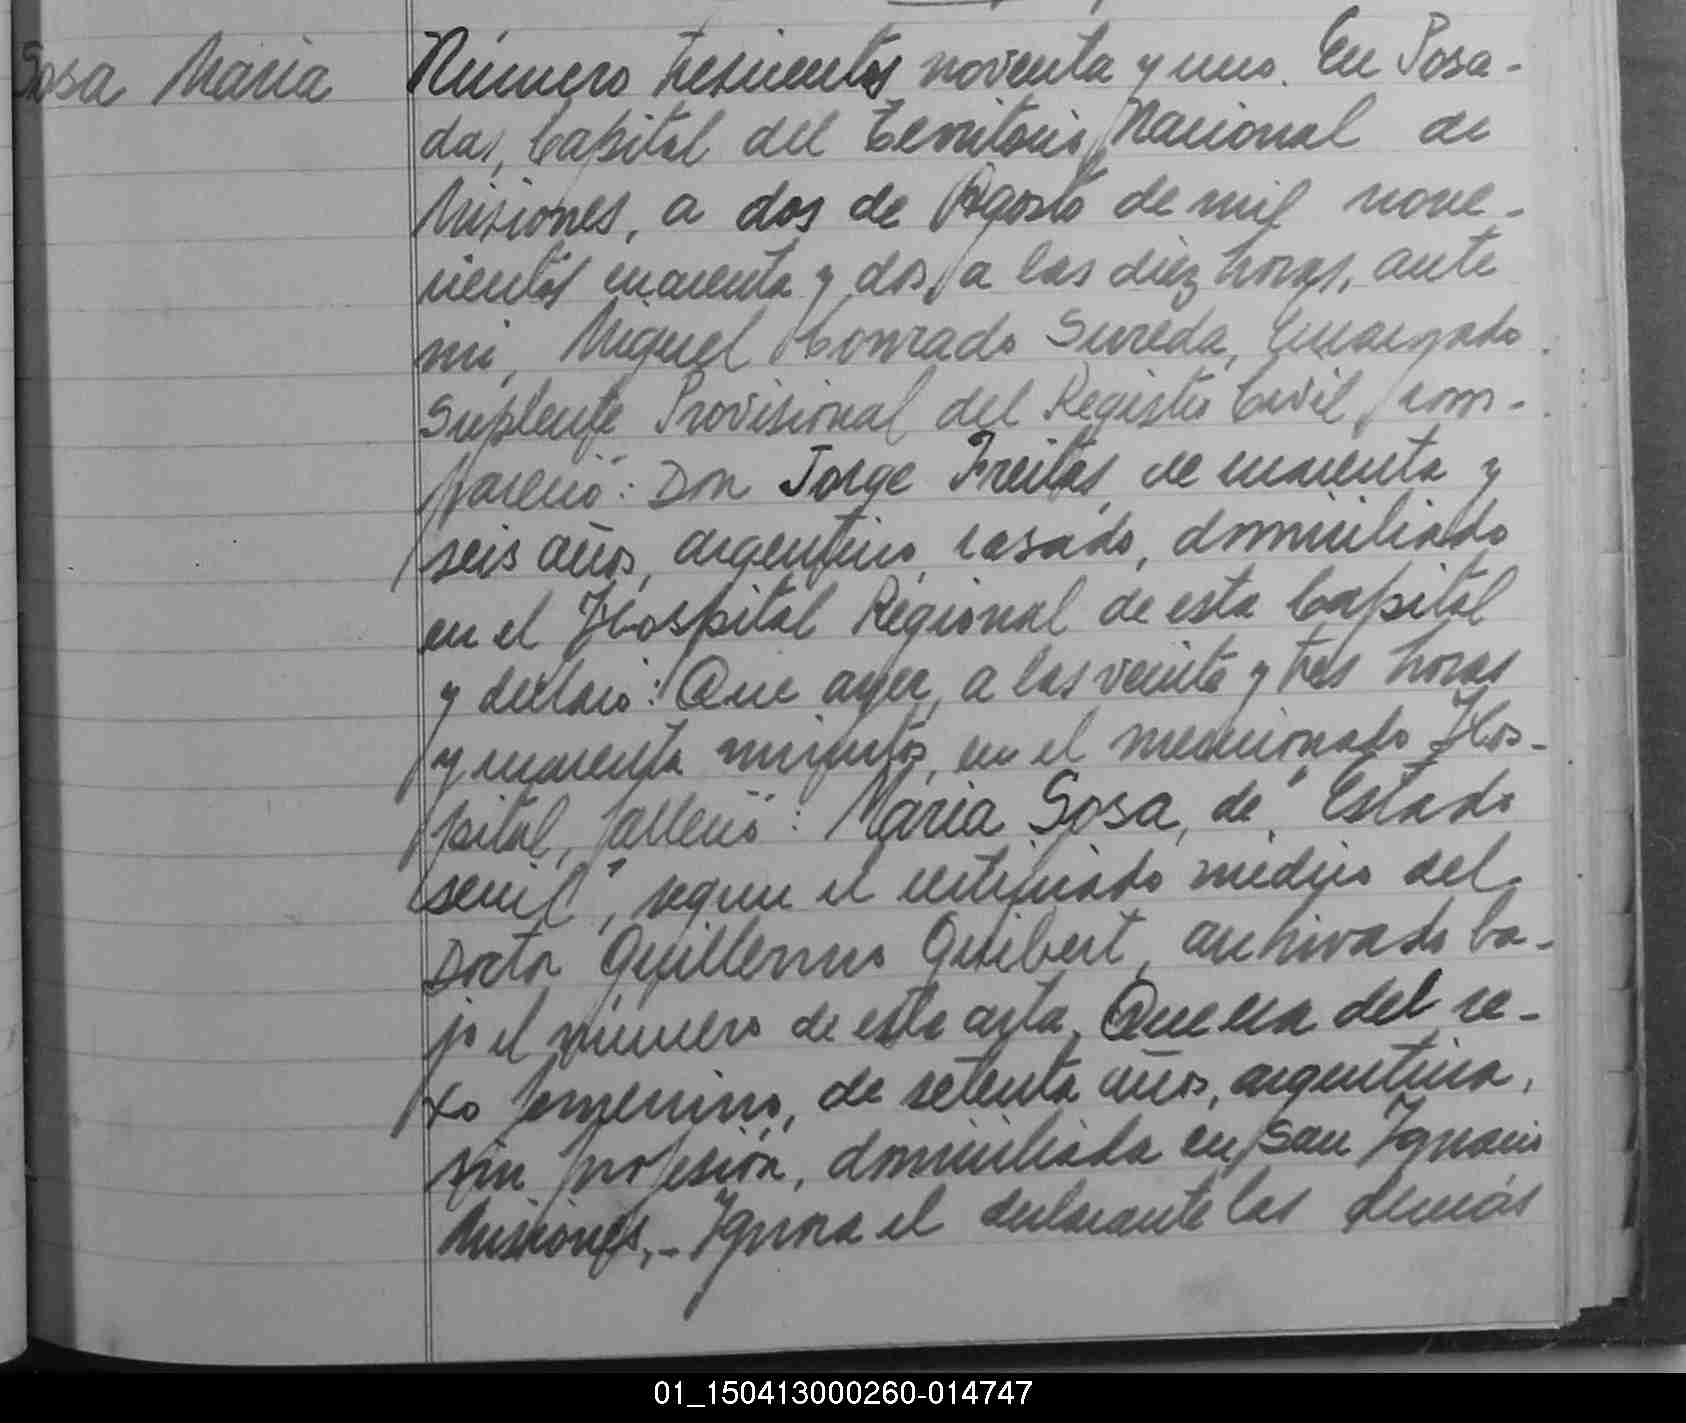 Sosa Maria
Número trescientos noventa y uno. En Posa-
das, Capital del Territorio Nacional de
Misiones, a dos de Agosto de mil nove-
cientos cuarenta y dos, a las diez horas, ante
mi, Miguel Conrado Sureda, Encargado
Suplente Provisional del Registro Civil, com-
pareció: Don Jorge Freitas, de cuarenta y
seis años, argentino, casado, domiciliado
en el Hospital Regional de esta Capital
y declaró: Que ayer, a las veinte y tres horas
y cuarenta minutos, en el mencionado Hos-
pital, falleció: Maria Sosa, de "Estado
senil", segun el certificado médico del
Doctor Guillermo Gisibert, archivado ba-
jo el número de esta acta. Que era del se-
xo femenino, de setenta años, argentina,
sin profesión, domiciliada en San Ignacio
Misiones.- Ignora el declarante las demás
01_150413000260-014747